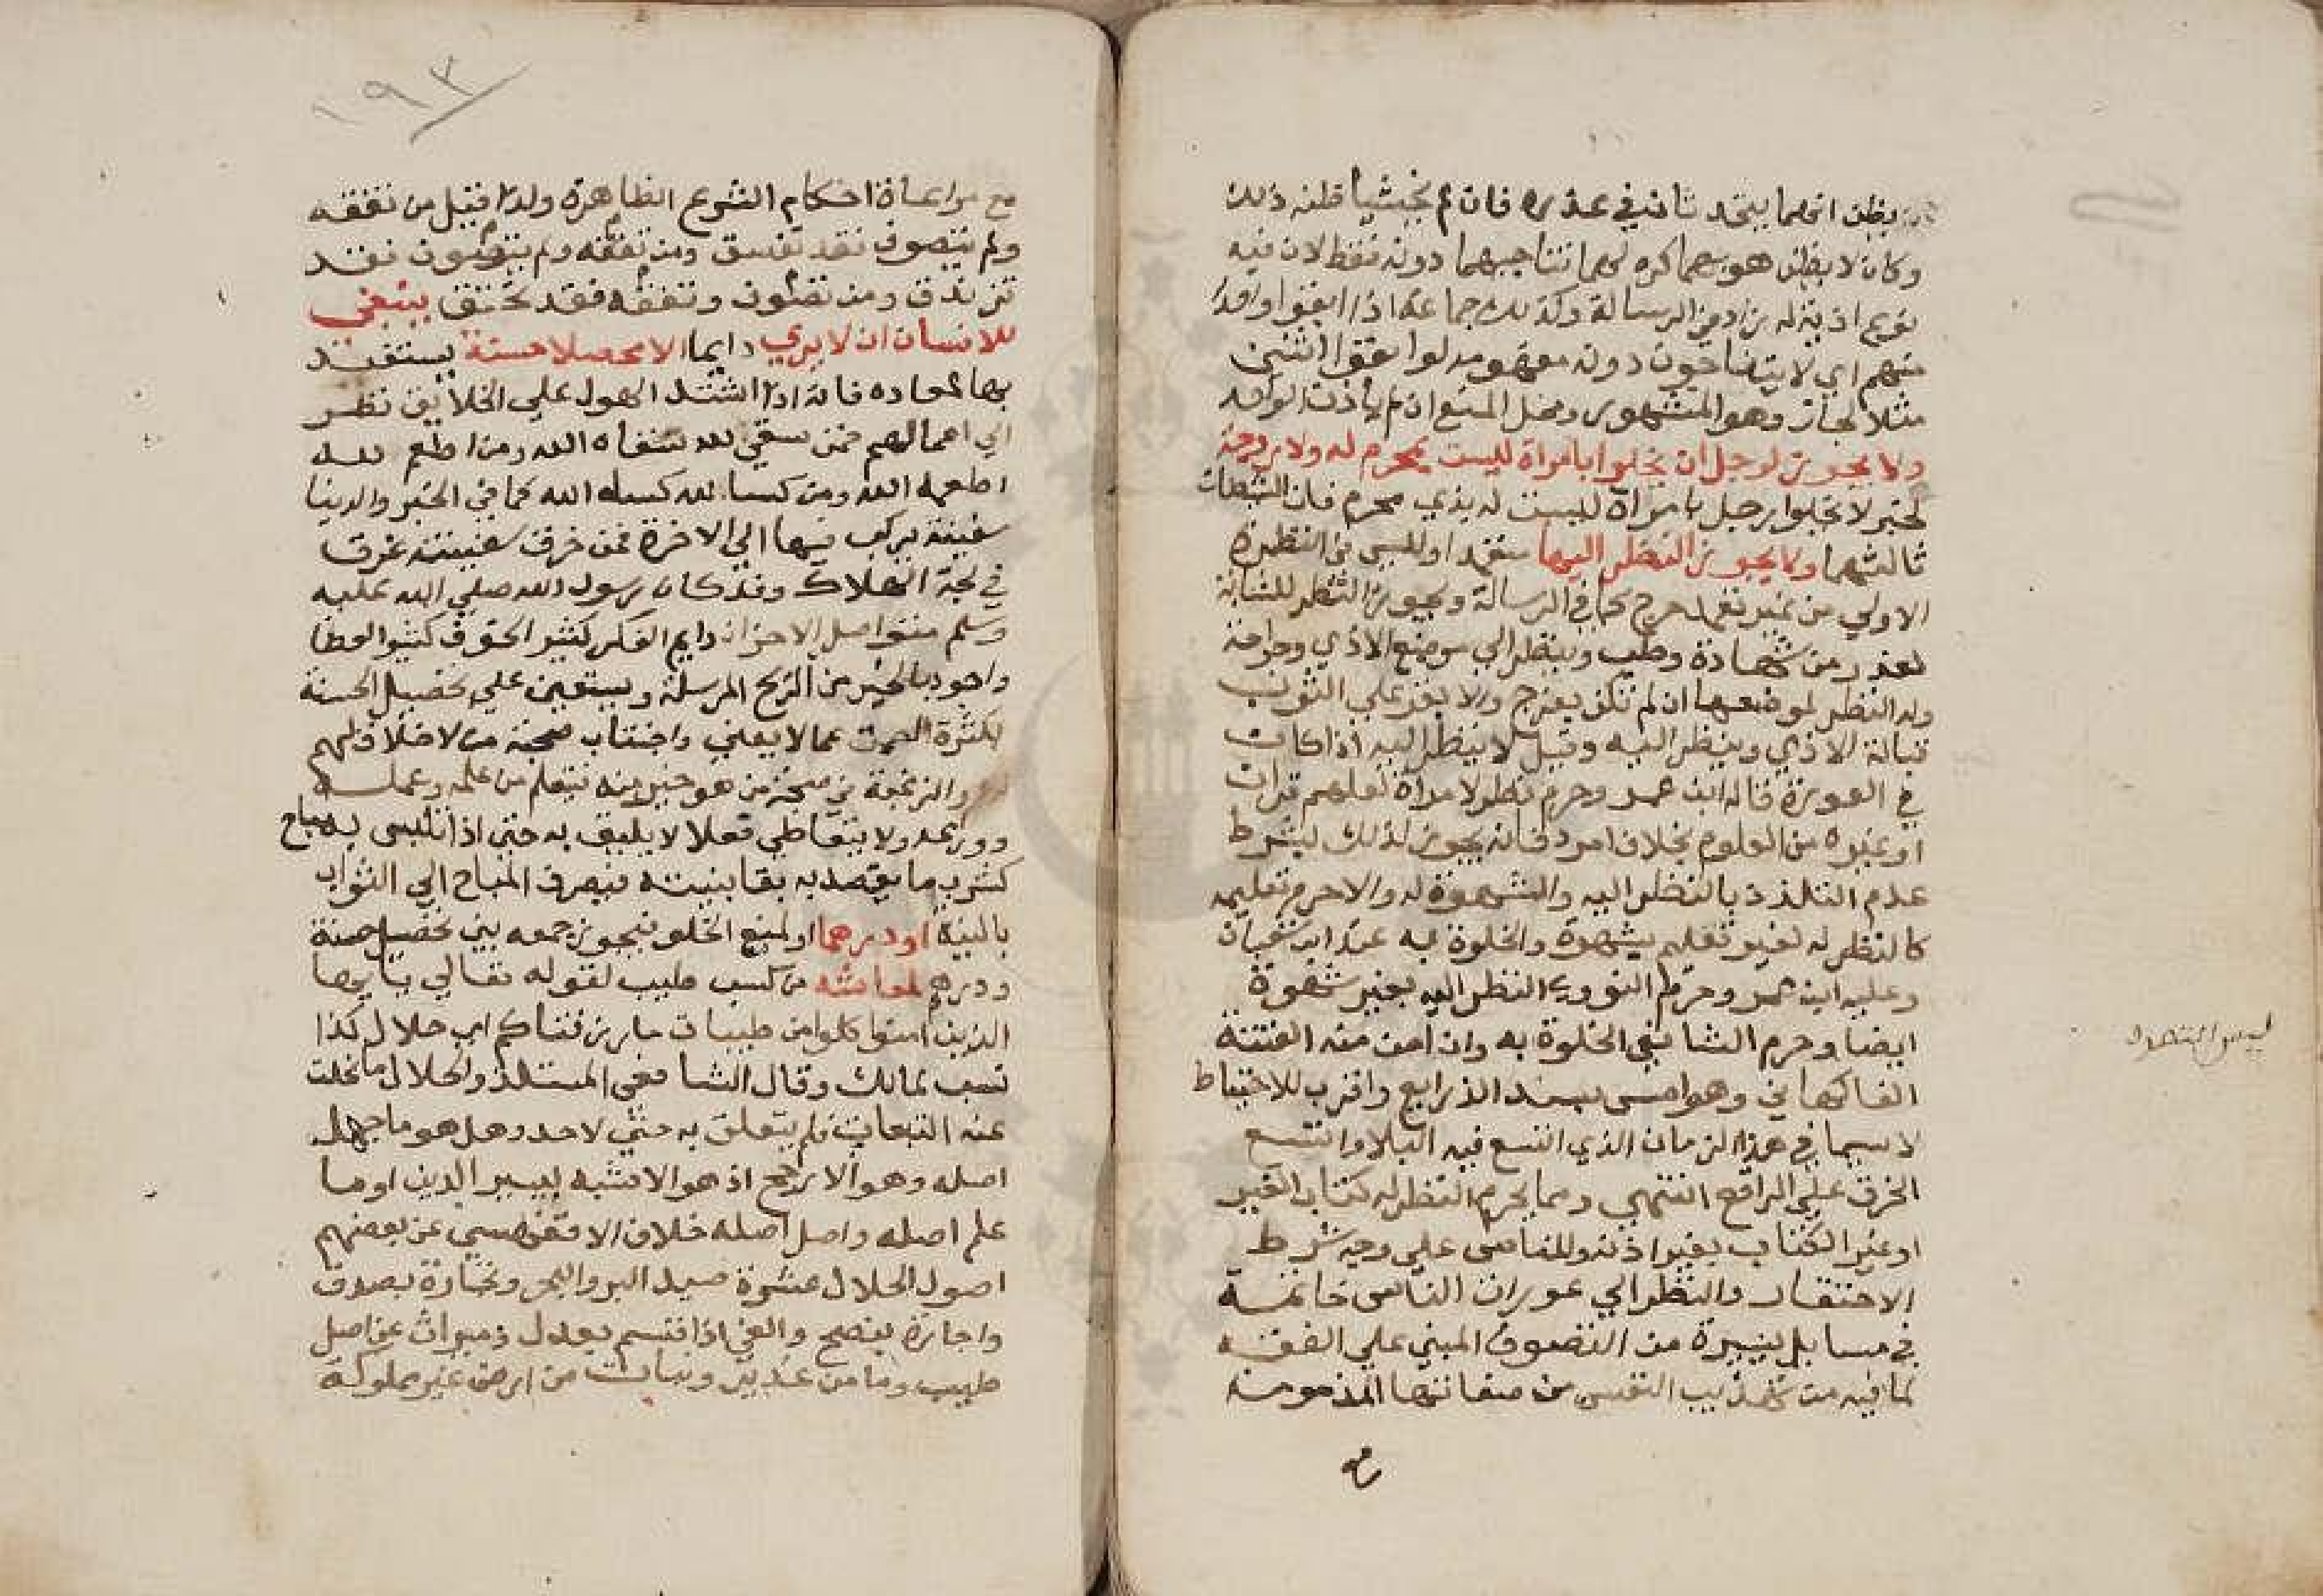 يظن انهما يتحدثان في عذره فان لم يخشيا ظنه ذلك
وكان لا يظن هو بهما كره لهما تناجيهما دونه فقط لان فيه
نوع اذية له زاد في الرسالة وكذلك جماعة اذا ابقوا واحدا
منهم اي لا يتناجون دونه مفهومه لو ابقوا اثنين
مثلا لجاز وهو المشهور ومحل المنع ان لم ياذن الواحد
ولا يجوز لرجل ان يخلوا بامراة ليست بمحرم له ولا زوجة
لخبر لا يخلوا رجل بامراة ليست له بذي محرم فان الشيطان
ثالثهما ولا يجوز النظر اليها متعمدا وليس في النظرة
الاولي من غير تعمد حرج كما في الرسالة ويجوز النظر للشابة
لعذر من شهادة وطب وينظر الي موضع الاذي وجراحة
وله النظر لموضعها ان لم تكن بفرج والا بقر علي الثوب
قبالة الاذي وينظر اليه وقيل لا ينظر اليه اذا كانت
في العورة قاله ابن عمر وحرم نظر لامراة لعلهم قران
او غيره من العلوم بخلاف امرد فانه يجوز لذلك بشرط
عدم التلذذ بالنظر اليه والشهوة له والا حرم تعليمه
كالنظر له لغير تعليم بشهوة والخلوة به عند ابن شعبان
وعليه ابن عمر وحرم النووي النظر اليه بغير شهوة
ايضا وحرم الشافعي الخلوة به وان امن منه الفتنة
الفاكهاني وهو امس بسد الذرايع واقرب للاحتياط
لا سيما في هذا الزمان الذي اتسع فيه البلا واتسع
الخرق علي الراقع انتهي ومما يحرم النظر له كتاب الغير
او غير الكتاب بغير اذنه وللقاصي علي وجه شرط
الاحتقار والنظر الي عورات الناس خاتمة
في مسايل يسيرة من التصوف المبني علي الفقه
لما فيه من تهذيب النفس من صفاتها المذمومة
مع
١٩٣
مع مراعاة احكام الشرع الظاهرة ولذا قيل من تفقه
ولم يتصوف فقد تفسق ومن تصوف ولم يتفقه فقد
تزندق ومن تصوف وتفقه فقد تحقق ينبغي
للانسان ان لا يري دايما الا محصلا حسنة يستعد
بها لمعاده فانه اذا اشتد الهول علي الخلايق نظر
الي اعمالهم فمن سقي لله سقاه الله ومن اطعم لله
اطعمه الله ومن كسا لله كساه الله كما في الخبر والدنيا
سفينة يركب فيها الي الاخرة فمن خرق سفينته غرق
في لجة الهلاك وقد كان رسول الله صلي الله عليه
وسلم متواصل الاحزان دايم الفكر كثير الخوف كثير العطا
واجود بالخير من الريح المرسلة ويستعين علي تحصيل الحسنة
بكثرة الصمت عما لا يعني واجتناب صحبة من لا خلاق لهم
والرغبة في صحبة من هو خير منه فيتعلم من علمه وعمله
وورعه ولا يتعاطي فعلا لا يليق به حتي اذا تلبس بمباح
كشرب ما يقصد به بقا بنيته فيصرف المباح الي الثواب
بالنية او درهما او لمنع الخلو فيجوز جمعه بين تحصيل حسنة
ودرهم لمعاشه من كسب طيب لقوله تعالي يا ايها
الذين امنوا كلوا من طيبات ما رزقناكم اي حلال كذا
نسب لمالك وقال الشافعي المستلذ والحلال ما انحلت
عنه التبعات فلم يتعلق به حق لاحد وهل هو ما جهل
اصله وهو الارجح اذ هو الاشبه بيسير الدين او ما
علم اصله واصل اصله خلاف الاقفهسي عن بعضهم
اصول الحلال عشرة صيد البر والبحر وتجارة بصدق
واجارة بنصح والفي اذا قسم بعدل وميراث عن اصل
طيب وما من غدير ونبات من ارض غير مملوكة